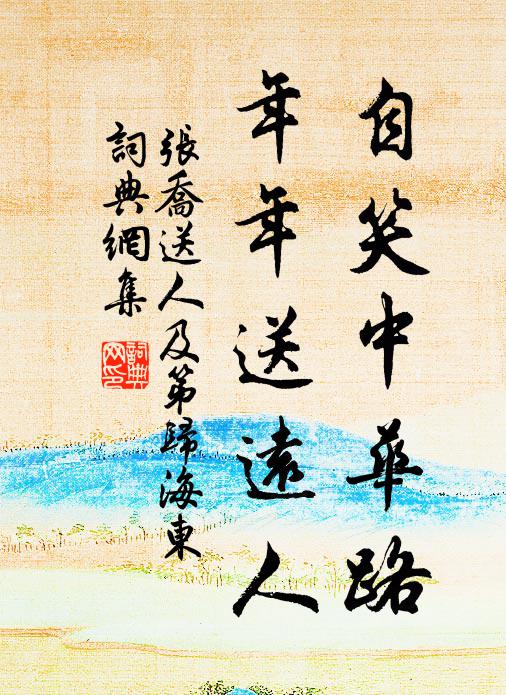 自笑中華路
年年送遠人
張喬送人及第歸海東
詞典網集
詞典網印